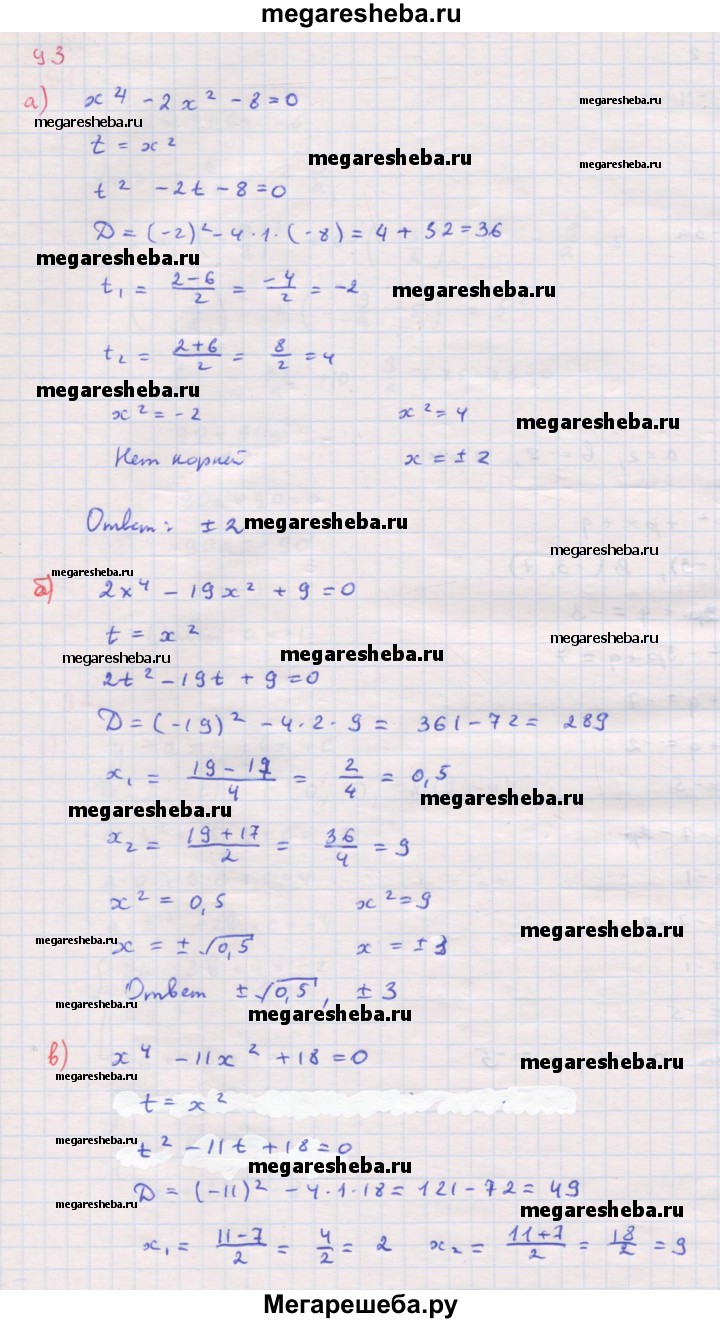 megaresheba.ru
УЗ
а) x⁴ - 2x² - 8 = 0
megaresheba.ru
megaresheba.ru
t = x²
megaresheba.ru
megaresheba.ru
t² - 2t - 8 = 0
D = (-2)² - 4·1·(-8) = 4 + 32 = 36
megaresheba.ru
t₁ = (2-6)/2 = -4/2 = -2
megaresheba.ru
t₂ = (2+6)/2 = 8/2 = 4
megaresheba.ru
x² = -2 x² = 4
megaresheba.ru
Нет корней x = ±2
Ответ: ±2
megaresheba.ru
megaresheba.ru
б) 2x⁴ - 19x² + 9 = 0
t = x²
megaresheba.ru
megaresheba.ru
megaresheba.ru
2t² - 19t + 9 = 0
D = (-19)² - 4·2·9 = 361 - 72 = 289
x₁ = (19-17)/4 = 2/4 = 0,5
megaresheba.ru
megaresheba.ru
x₂ = (19+17)/2 = 36/4 = 9
x² = 0,5 x² = 9
megaresheba.ru
megaresheba.ru
x = ±√0,5 x = ±3
Ответ ±√0,5, ±3
megaresheba.ru
megaresheba.ru
в) x⁴ - 11x² + 18 = 0
megaresheba.ru
megaresheba.ru
t = x²
megaresheba.ru
t² - 11t + 18 = 0
megaresheba.ru
D = (-11)² - 4·1·18 = 121 - 72 = 49
megaresheba.ru
x₁ = (11-7)/2 = 4/2 = 2 x₂ = (11+7)/2 = 18/2 = 9
Мегарешеба.ру